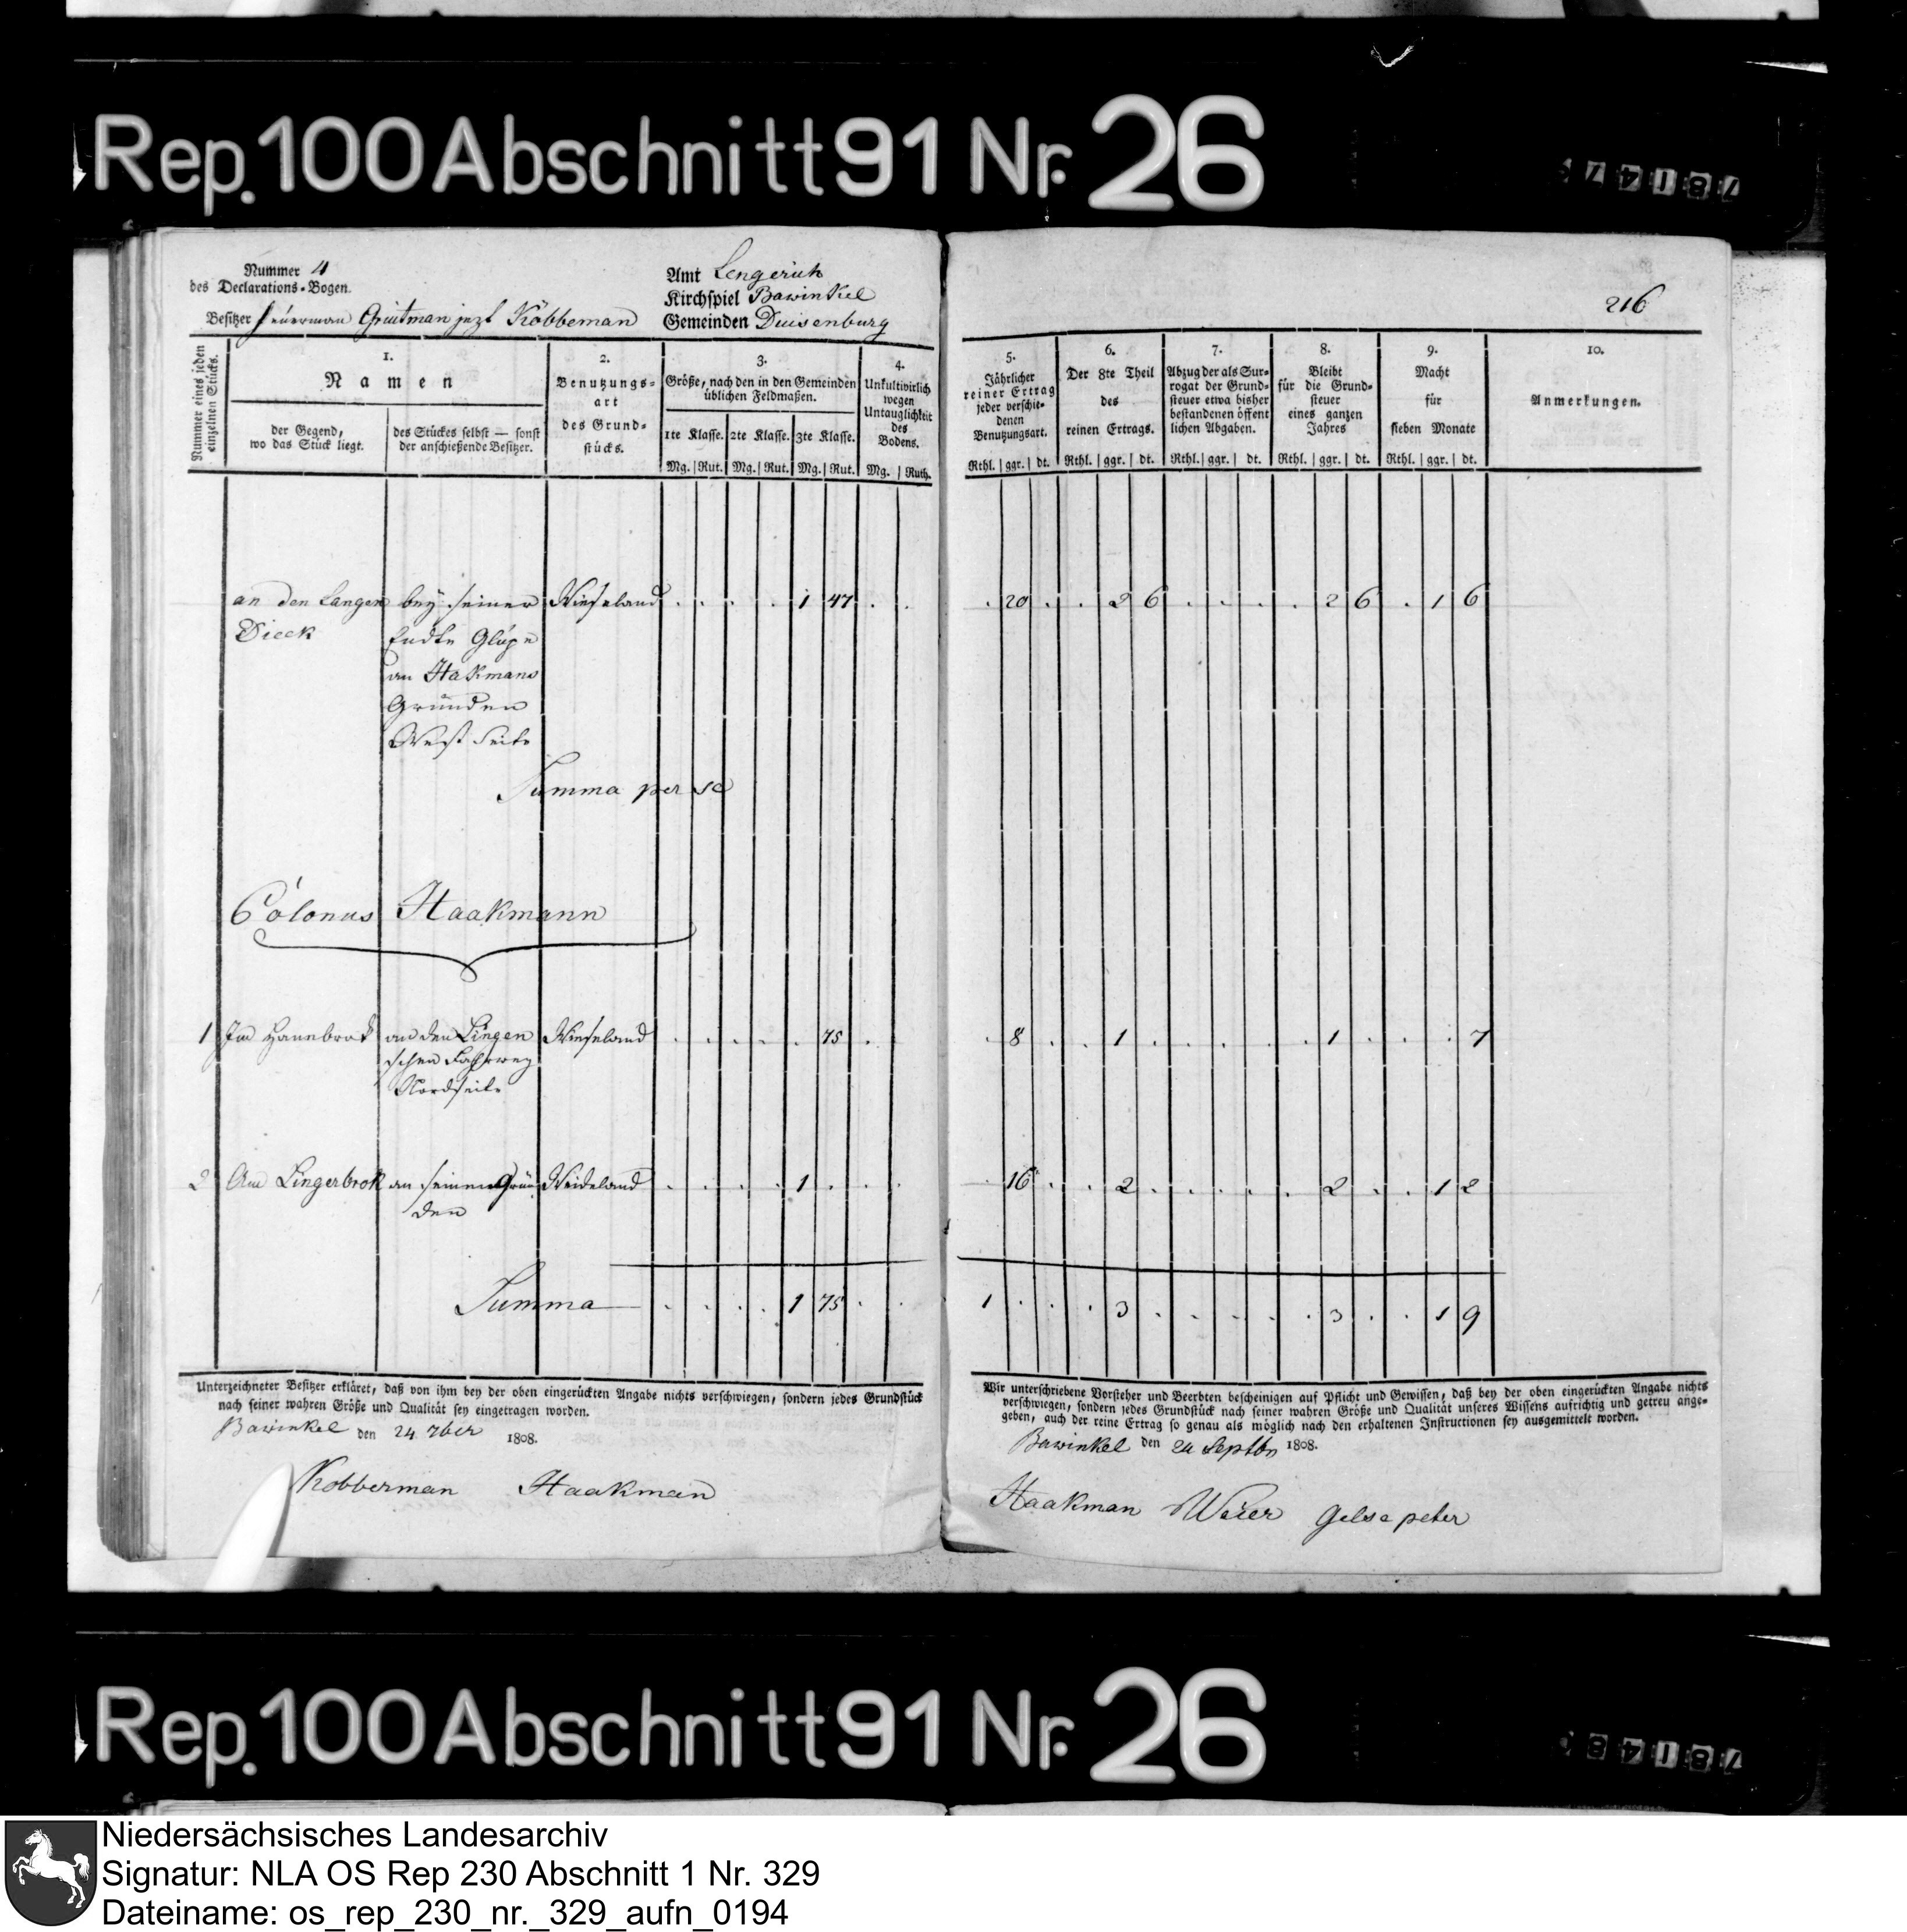 Rep. 100 Abschnitt 91 Nr. 26
78147
Nummer 4
des Declarations-Bogen.
Besitzer Heuerman Gruitman jezt Köbbeman
Amt Lengerich
Kirchspiel Bawinkel
Gemeinden Duisenburg
216
Nummer eines jeden einzelnen Stücks.
1.
Namen
der Gegend,
wo das Stück liegt.
des Stückes selbst — sonst
der anschießende Besitzer.
2.
Benutzungs-
art
des Grund-
stücks.
3.
Größe, nach den in den Gemeinden
üblichen Feldmaßen.
1te Klasse. 2te Klasse. 3te Klasse.
Mg. Rut. Mg. Rut. Mg. Rut.
4.
Unkultivirlich
wegen
Untauglichkeit
des
Bodens.
Mg. Ruth.
5.
Jährlicher
reiner Ertrag
jeder verschie-
denen
Benutzungsart.
Rthl. ggr. dt.
6.
Der 8te Theil
des
reinen Ertrags.
Rthl. ggr. dt.
7.
Abzug der als Sur-
rogat der Grund-
steuer etwa bisher
bestandenen öffent
lichen Abgaben.
Rthl. ggr. dt.
8.
Bleibt
für die Grund-
steuer
eines ganzen
Jahres
Rthl. ggr. dt.
9.
Macht
für
sieben Monate
Rthl. ggr. dt.
10.
Anmerkungen.
an den Langen bey seiner Wieseland . . . . 1 47 . . . 20 . . 2 6 . . . . 2 6 . 1 6
Dieck
Glüpe
an Hakmans
Gründen
West Seite
Summa per se
Colonus Haakmann
1 Im Hannebrok an den Lingen Wieseland . . . . . 75 . . 8 . . 1 . . . . . 1 . . . 7
schen Fahrweg
Nordseite
2 Am Lingerbrok an seinen Grün Weideland . . . . 1 . . . 16 . . 2 . . . . . 2 . . 1 2
den
Summa . . . . 1 75 . . 1 . . . 3 . . . . . 3 . . 1 9
Unterzeichneter Besitzer erkläret, daß von ihm bey der oben eingerückten Angabe nichts verschwiegen, sondern jedes Grundstück
nach seiner wahren Größe und Qualität sey eingetragen worden.
Bawinkel den 24 7ber 1808.
Kobberman Haakman
Wir unterschriebene Vorsteher und Beerbten bescheinigen auf Pflicht und Gewissen, daß bey der oben eingerückten Angabe nichts
verschwiegen, sondern jedes Grundstück nach seiner wahren Größe und Qualität unseres Wissens aufrichtig und getreu ange-
geben, auch der reine Ertrag so genau als möglich nach den erhaltenen Instructionen sey ausgemittelt worden.
Bawinkel den 24 Septbr 1808.
Haakman Weier Gelse peter
Rep. 100 Abschnitt 91 Nr. 26
78148
Niedersächsisches Landesarchiv
Signatur: NLA OS Rep 230 Abschnitt 1 Nr. 329
Dateiname: os_rep_230_nr._329_aufn_0194